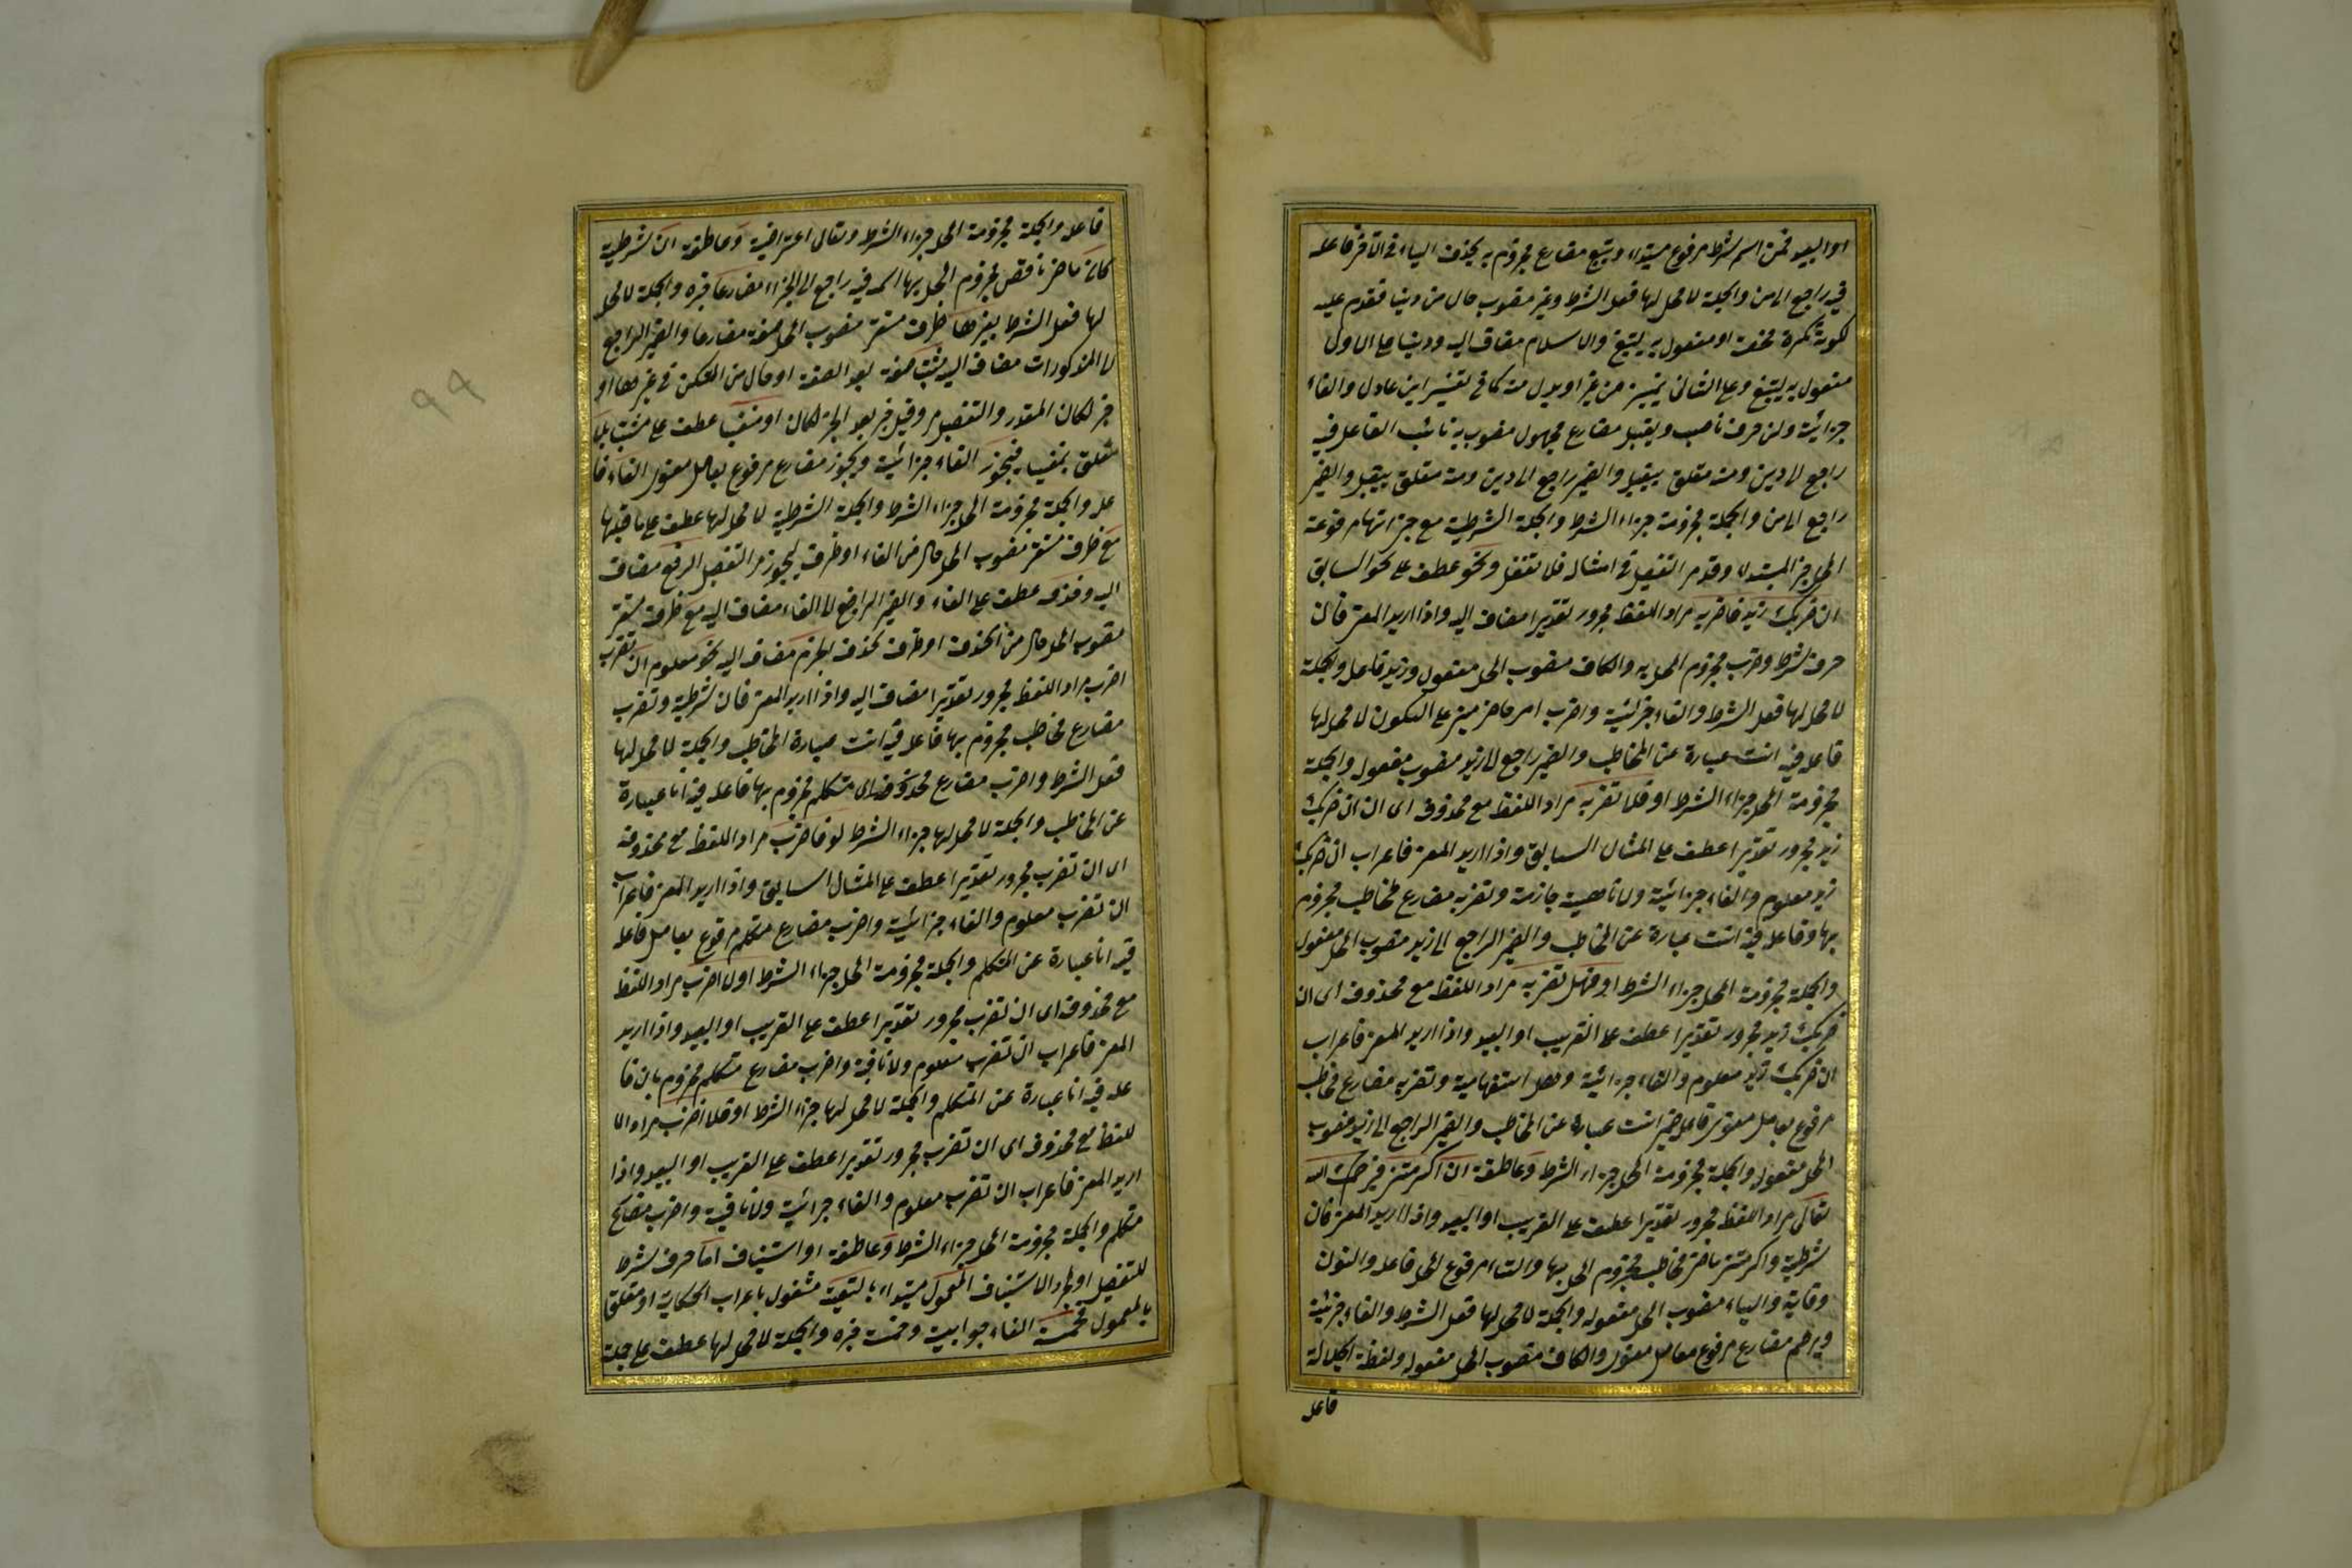 او البعيد فمن اسم شرط مرفوع مبتداء ويبتغ مضارع مجزوم به بحذف الياء في الآخر فاعله
فيه راجع الى من والجملة لا محل لها فعل الشرط وغير منصوب حال من دينا قدم عليه
لكونه نكرة محضة او مفعول به ليبتغ والاسلام مضاف اليه ودينا على الاول
مفعول به ليبتغ وعلى الثاني تمييز من غير او بدل منه كما في تفسير ابن عادل والفاء
جزائية ولن حرف ناصب ويقبل مضارع مجهول منصوب به نائب الفاعل فيه
راجع الى دين ومنه متعلق بيقبل والضمير راجع الى دين ومنه متعلق بيقبل والضمير
راجع الى من والجملة مجزومة جزاء الشرط والجملة الشرطية مع جزائها مرفوعة
المحل خبر المبتداء وقد مر التفصيل في امثاله فلا تغفل ونحو عطف على نحو السابق
ان ضربك زيد فاضربه مراد اللفظ مجرور تقديرا مضاف اليه واذا اريد المعنى فان
حرف شرط وضرب مجزوم المحل به والكاف منصوب المحل مفعول وزيد فاعل والجملة
لا محل لها فعل الشرط والفاء جزائية واضرب امر حاضر مبني على السكون لا محل لها
فاعله فيه انت عبارة عن المخاطب والضمير راجع الى زيد منصوب مفعول والجملة
مجزومة المحل جزاء الشرط او فلا تضربه مراد اللفظ مع محذوف اى ان ان ضربك
زيد مجرور تقديرا عطف على المثال السابق واذا اريد المعنى فاعراب ان ضربك
زيد معلوم والفاء جزائية ولا ناهية جازمة وتضربه مضارع مخاطب مجزوم
بها وفاعله فيه انت عبارة عن المخاطب والضمير الراجع الى زيد منصوب المحل مفعول
والجملة مجزومة المحل جزاء الشرط او فهل تضربه مراد اللفظ مع محذوف اى ان
ضربك زيد مجرور تقديرا عطف على القريب او البعيد واذا اريد المعنى فاعراب
ان ضربك زيد معلوم والفاء جزائية وهل استفهامية وتضربه مضارع مخاطب
مرفوع بعامل معنوى فاعله انت عبارة عن المخاطب والضمير الراجع الى زيد منصوب
المحل مفعول والجملة مجزومة المحل جزاء الشرط وعاطفة ان اكرمتني فيرحمك الله
تعالى مراد اللفظ مجرور تقديرا عطف على القريب او البعيد واذا اريد المعنى فان
شرطية واكرمتني ماضي مخاطب مجزوم المحل بها والتاء مرفوع المحل فاعله والنون
وقاية والياء منصوب المحل مفعوله والجملة لا محل لها فعل الشرط والفاء جزئية
ويرحم مضارع مرفوع بعامل معنوى والكاف منصوب المحل مفعوله ولفظة الجلالة
فاعله
فاعله والجملة مجزومة المحل جزاء الشرط وتعالى اعتراضية وعاطفة ان شرطية
كان ماضى ناقص مجزوم المحل بها اسمه فيه راجع الى الجزاء مضارعا خبره والجملة لا محل
لها فعل الشرط بغيرها ظرف مستقر منصوب المحل صفة مضارعا والضمير الراجع
الى المذكورات مضاف اليه مثبت صفة بعد الصفة او حال من المستكن في بغيرها او
خبر لكان المقدر والتفصيل مر وقيل خبر بعد الخبر لكان او منفيا عطف على مثبت بلا
متعلق بمنفيا فيجوز الفاء جزائية ويجوز مضارع مرفوع بعامل معنوى الفاء فا
عله والجملة مجزومة المحل جزاء الشرط والجملة الشرطية لا محل لها عطف على ما قبلها
مع ظرف مستقر منصوب المحل حال من الفاء او ظرف ليجوز مر التفصيل الرفع مضاف
اليه وحذفه عطف على الفاء والضمير الراجع الى الفاء مضاف اليه مع ظرف مستقر
منصوب المحل حال من الحذف او ظرف لحذف الجزم مضاف اليه نحو معلوم ان تضرب
اضرب مراد اللفظ مجرور تقديرا مضاف اليه واذا اريد المعنى فان شرطية وتضرب
مضارع مخاطب مجزوم بها فاعله فيه انت عبارة المخاطب والجملة لا محل لها
فعل الشرط واضرب مضارع متكلم مجزوم بها فاعله فيه انا عبارة
عن المخاطب والجملة لا محل لها جزاء الشرط او فاضرب مراد اللفظ مع محذوفه
اى ان تضرب مجرور تقديرا عطف على المثال السابق واذا اريد المعنى فاعراب
ان تضرب معلوم والفاء جزائية واضرب مضارع متكلم مرفوع بعامل فاعله
فيه انا عبارة عن المتكلم والجملة مجزومة المحل جزاء الشرط او لا اضرب مراد اللفظ
مع محذوف اى ان تضرب مجرور تقديرا عطف على القريب او البعيد واذا اريد
المعنى فاعراب ان تضرب معلوم ولا نافية واضرب مضارع متكلم مجزوم بان فا
عله فيه انا عبارة عن المتكلم والجملة لا محل لها جزاء الشرط او فلا اضرب مراد الا
للفظ مع محذوف اى ان تضرب مجرور تقديرا عطف على القريب او البعيد واذا
اريد المعنى فاعراب ان تضرب معلوم والفاء جزائية ولا نافية واضرب مضارع
متكلم والجملة مجزومة المحل جزاء الشرط وعاطفة او استيناف اما حرف شرط
للتفصيل او لمجرد الاستيناف المعمول مبتداء بالتبعية مشغول باعراب الحكاية او متعلق
بالمعمول فخمسة الفاء جوابية وخمسة خبره والجملة لا محل لها عطف على جملة
٩٩